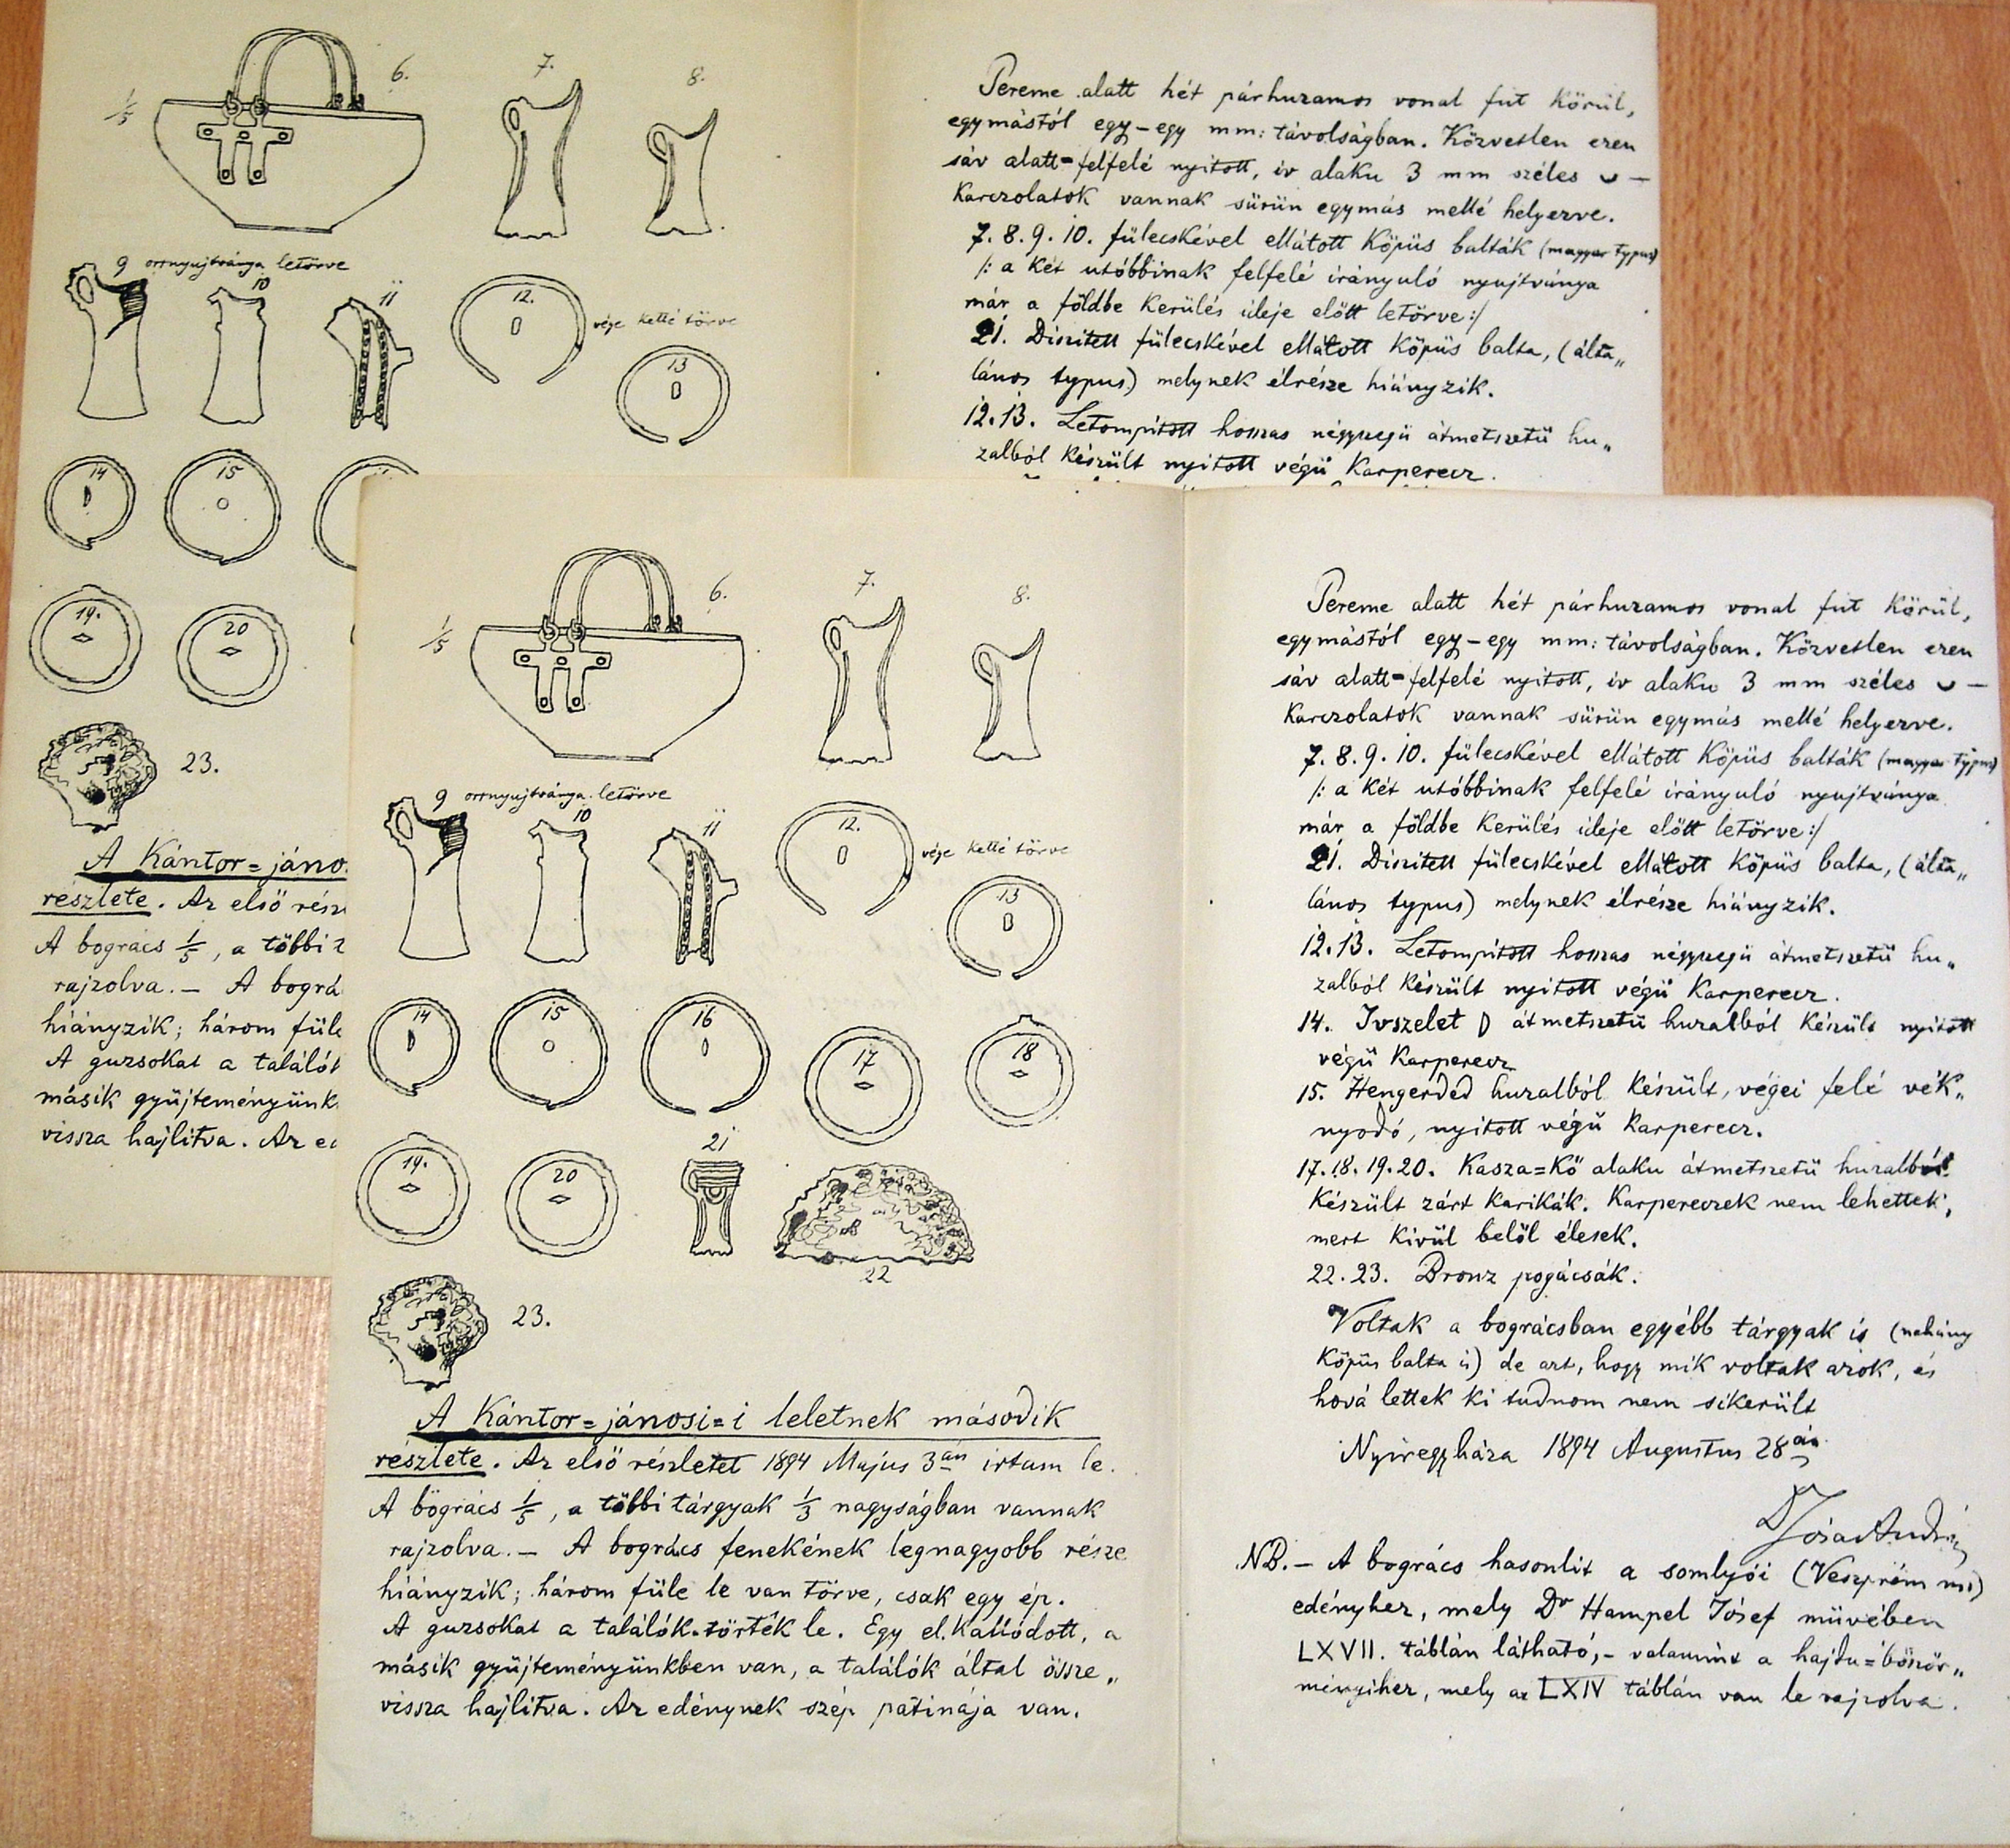 6.
7.
8.
1/5
9 orrnyujtványa letörve
10
11
12.
vége ketté törve
13
14
15
19.
20
23.
A Kántor=jáno
részlete. Az első rész
A bogrács 1/5, a többi t
rajzolva.— A bográ
hiányzik; három füle
A guzsokat a találók
másik gyüjteményünk
vissza hajlitva. Az ed
Pereme alatt hét párhuzamos vonal fut körül,
egymástól egy–egy mm: távolságban. Közvetlen ezen
sáv alatt=felfelé nyitott, iv alaku 3 mm széles ᴗ –
karczolatok vannak sürün egymás mellé helyezve.
7. 8. 9. 10. fülecskével ellátott köpüs balták (magyar typus)
/: a két utóbbinak felfelé irányuló nyujtványa
már a földbe kerülés ideje előtt letörve :/
21. Diszitett fülecskével ellátott köpüs balta, (álta„
lános typus) melynek élrésze hiányzik.
12. 13. Letompitott hosszas négyszegü átmetszetü hu„
zalból készült nyitott végü karperecz.
6.
7.
8.
1/5
9 orrnyujtványa letörve
10
11
12.
vége ketté törve
13
14
15
16
17
18
19.
20
21
22
23.
A Kántor=jánosi=i leletnek második
részlete. Az első részletet 1894 Majus 3án irtam le.
A bogrács 1/5, a többi tárgyak 1/3 nagyságban vannak
rajzolva.— A bogrács fenekének legnagyobb része
hiányzik; három füle le van törve, csak egy ép.
A guzsokat a találók törték le. Egy el kallódott, a
másik gyüjteményünkben van, a találók által össze„
vissza hajlitva. Az edénynek szép patinája van.
Pereme alatt hét párhuzamos vonal fut körül,
egymástól egy–egy mm: távolságban. Közvetlen ezen
sáv alatt=felfelé nyitott, iv alaku 3 mm széles ᴗ –
karczolatok vannak sürün egymás mellé helyezve.
7. 8. 9. 10. fülecskével ellátott köpüs balták (magyar typus)
/: a két utóbbinak felfelé irányuló nyujtványa
már a földbe kerülés ideje előtt letörve :/
21. Diszitett fülecskével ellátott köpüs balta, (álta„
lános typus) melynek élrésze hiányzik.
12. 13. Letompitott hosszas négyszegü átmetszetü hu„
zalból készült nyitott végü karperecz.
14. Ivszelet D átmetszetü huzalból készült nyitott
végü karperecz
15. Hengerded huzalból készült, végei felé vék„
nyodó, nyitott végü karperecz.
17. 18. 19. 20. Kasza=kő alaku átmetszetü huzalból
készült zárt karikák. Karpereczek nem lehettek,
mert kivül belöl élesek.
22. 23. Bronz pogácsák.
Voltak a bográcsban egyébb tárgyak is (nehány
köpüs balta is) de azt, hogy mik voltak azok, és
hová lettek ki tudnom nem sikerült
Nyiregyháza 1894 Augustus 28án
Dr Jósa András
NB.– A bogrács hasonlit a somlyói (Veszprém m.)
edényhez, mely Dr Hampel József müvében
LXVII. táblán látható,– valamint a hajdu=böször„
ményihez, mely az LXIV táblán van le rajzolva.